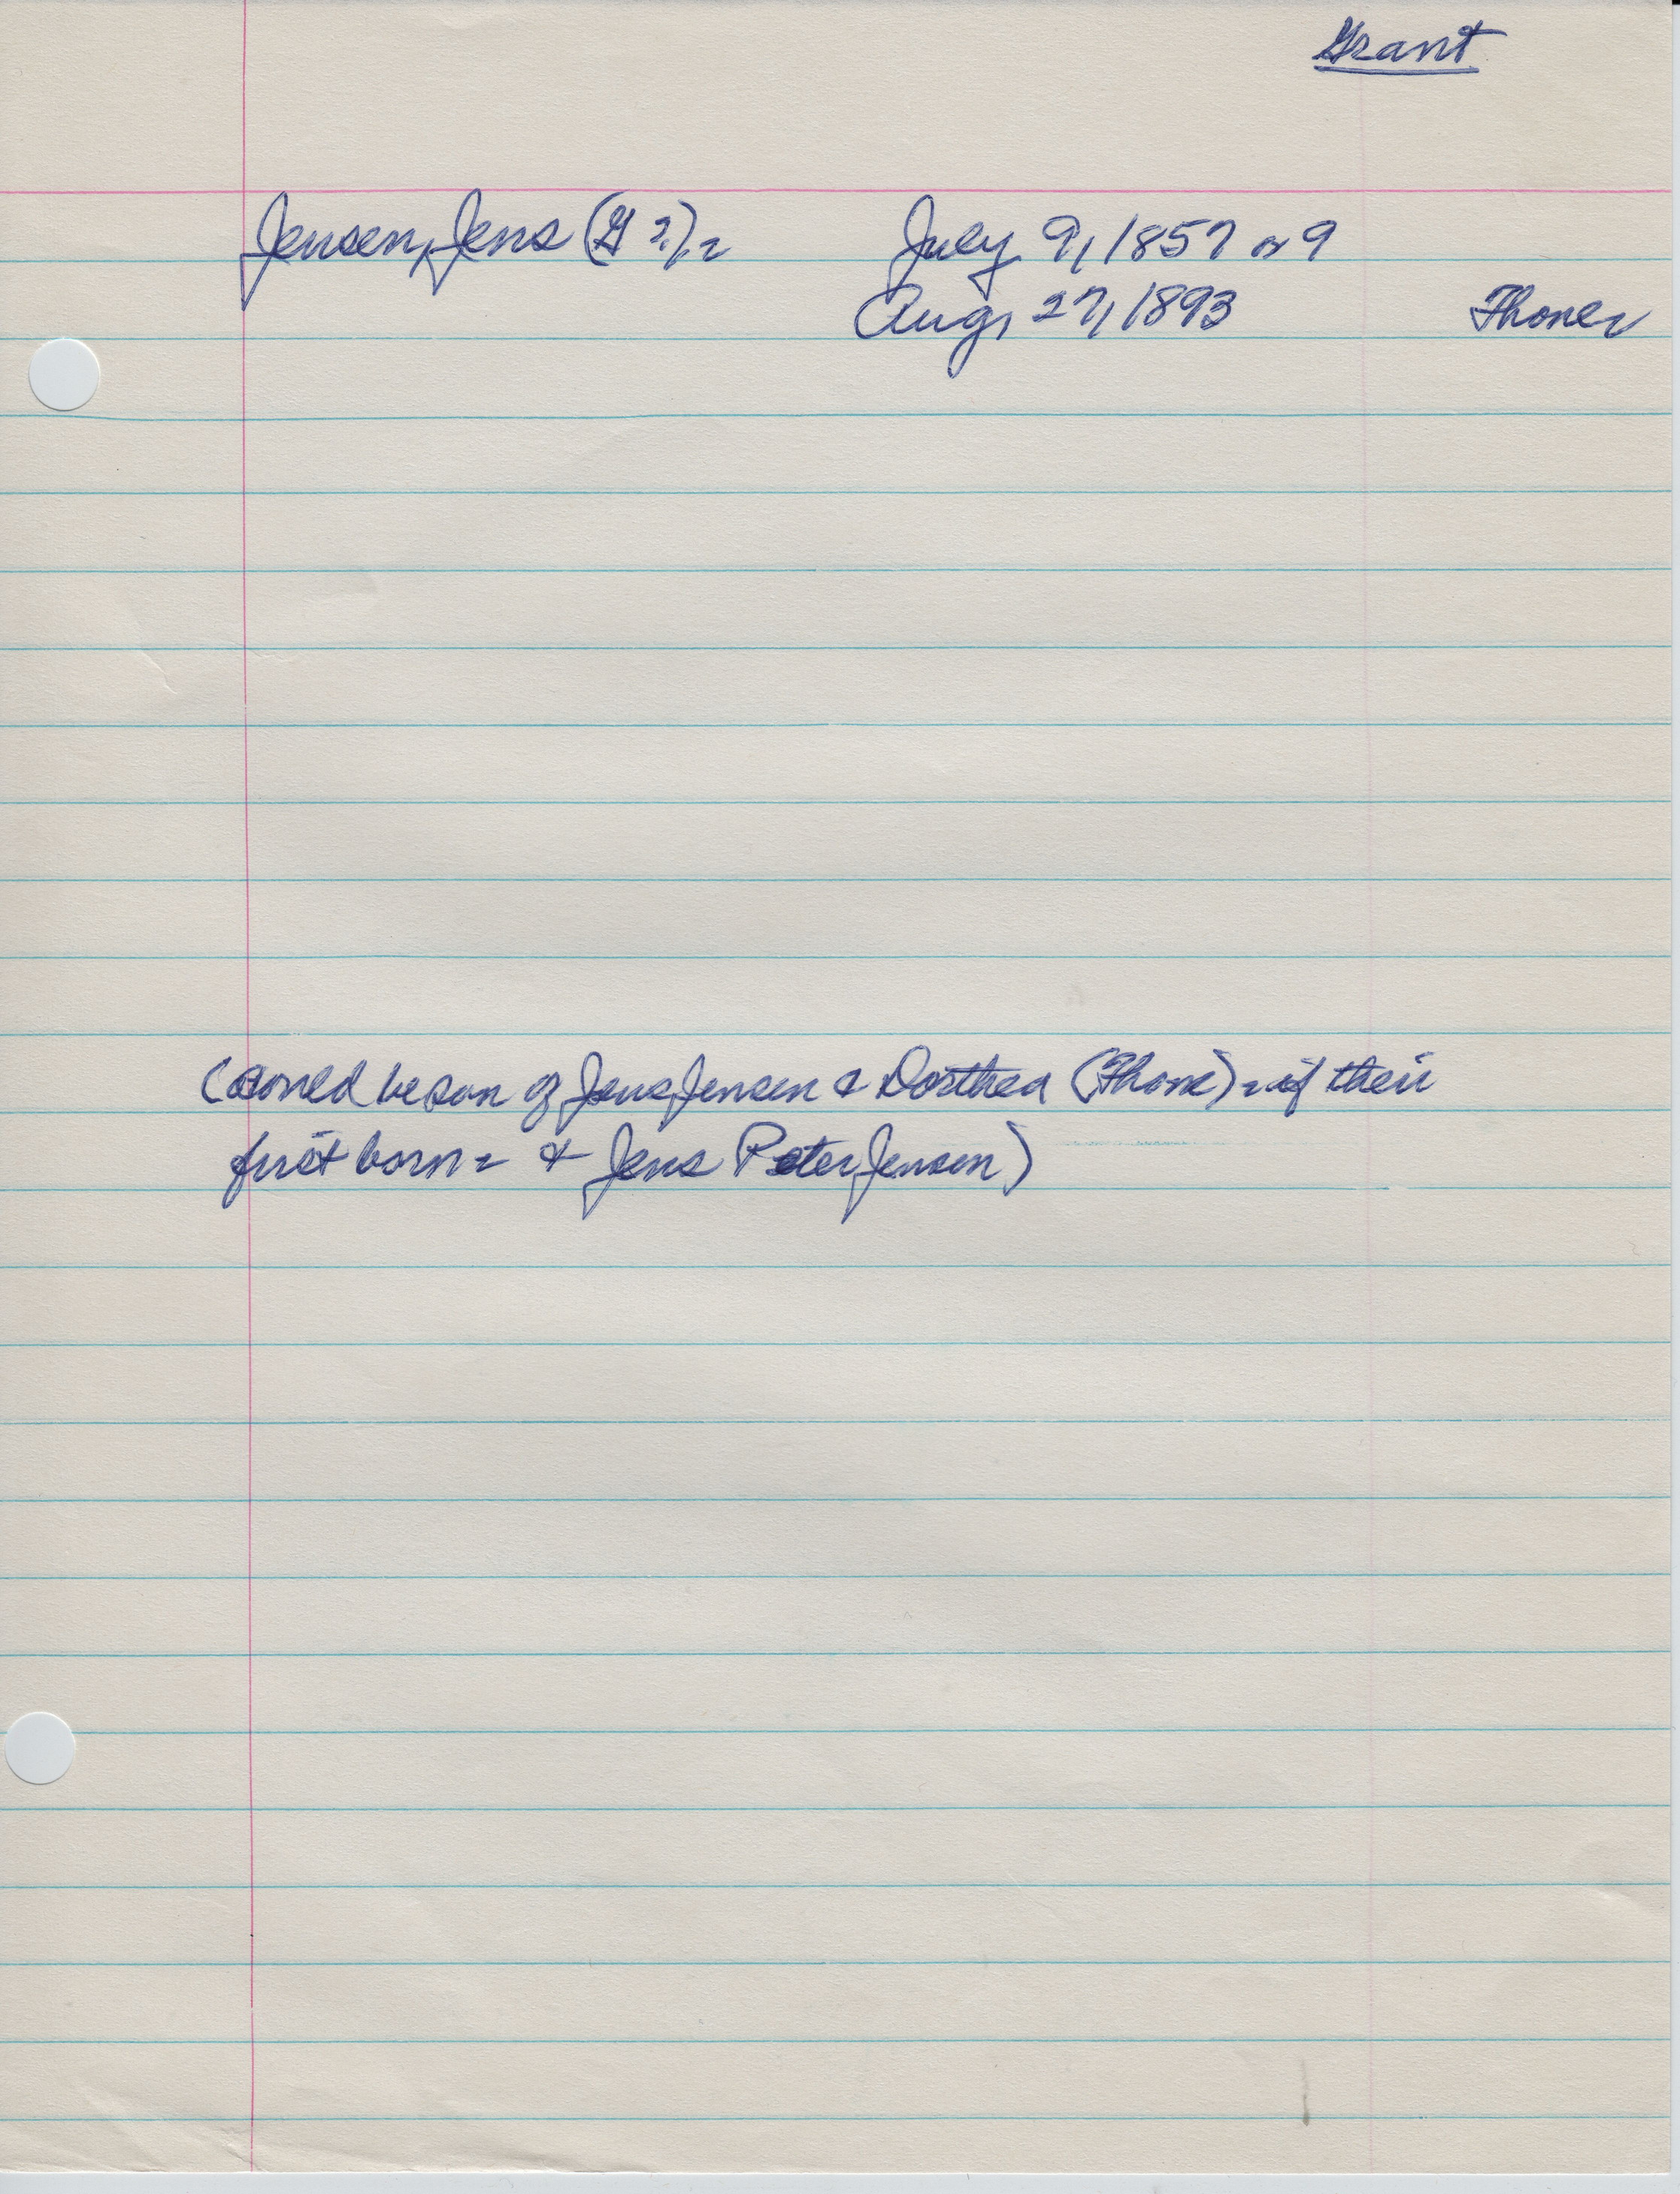 Grant
Jensen, Jens (G?)-
July 9, 1857 or 9
Aug. 27, 1893
Thone-
(could be son of Jens Jensen & Dorthea (Thone) - if their
first born - & Jens Peter Jensen)